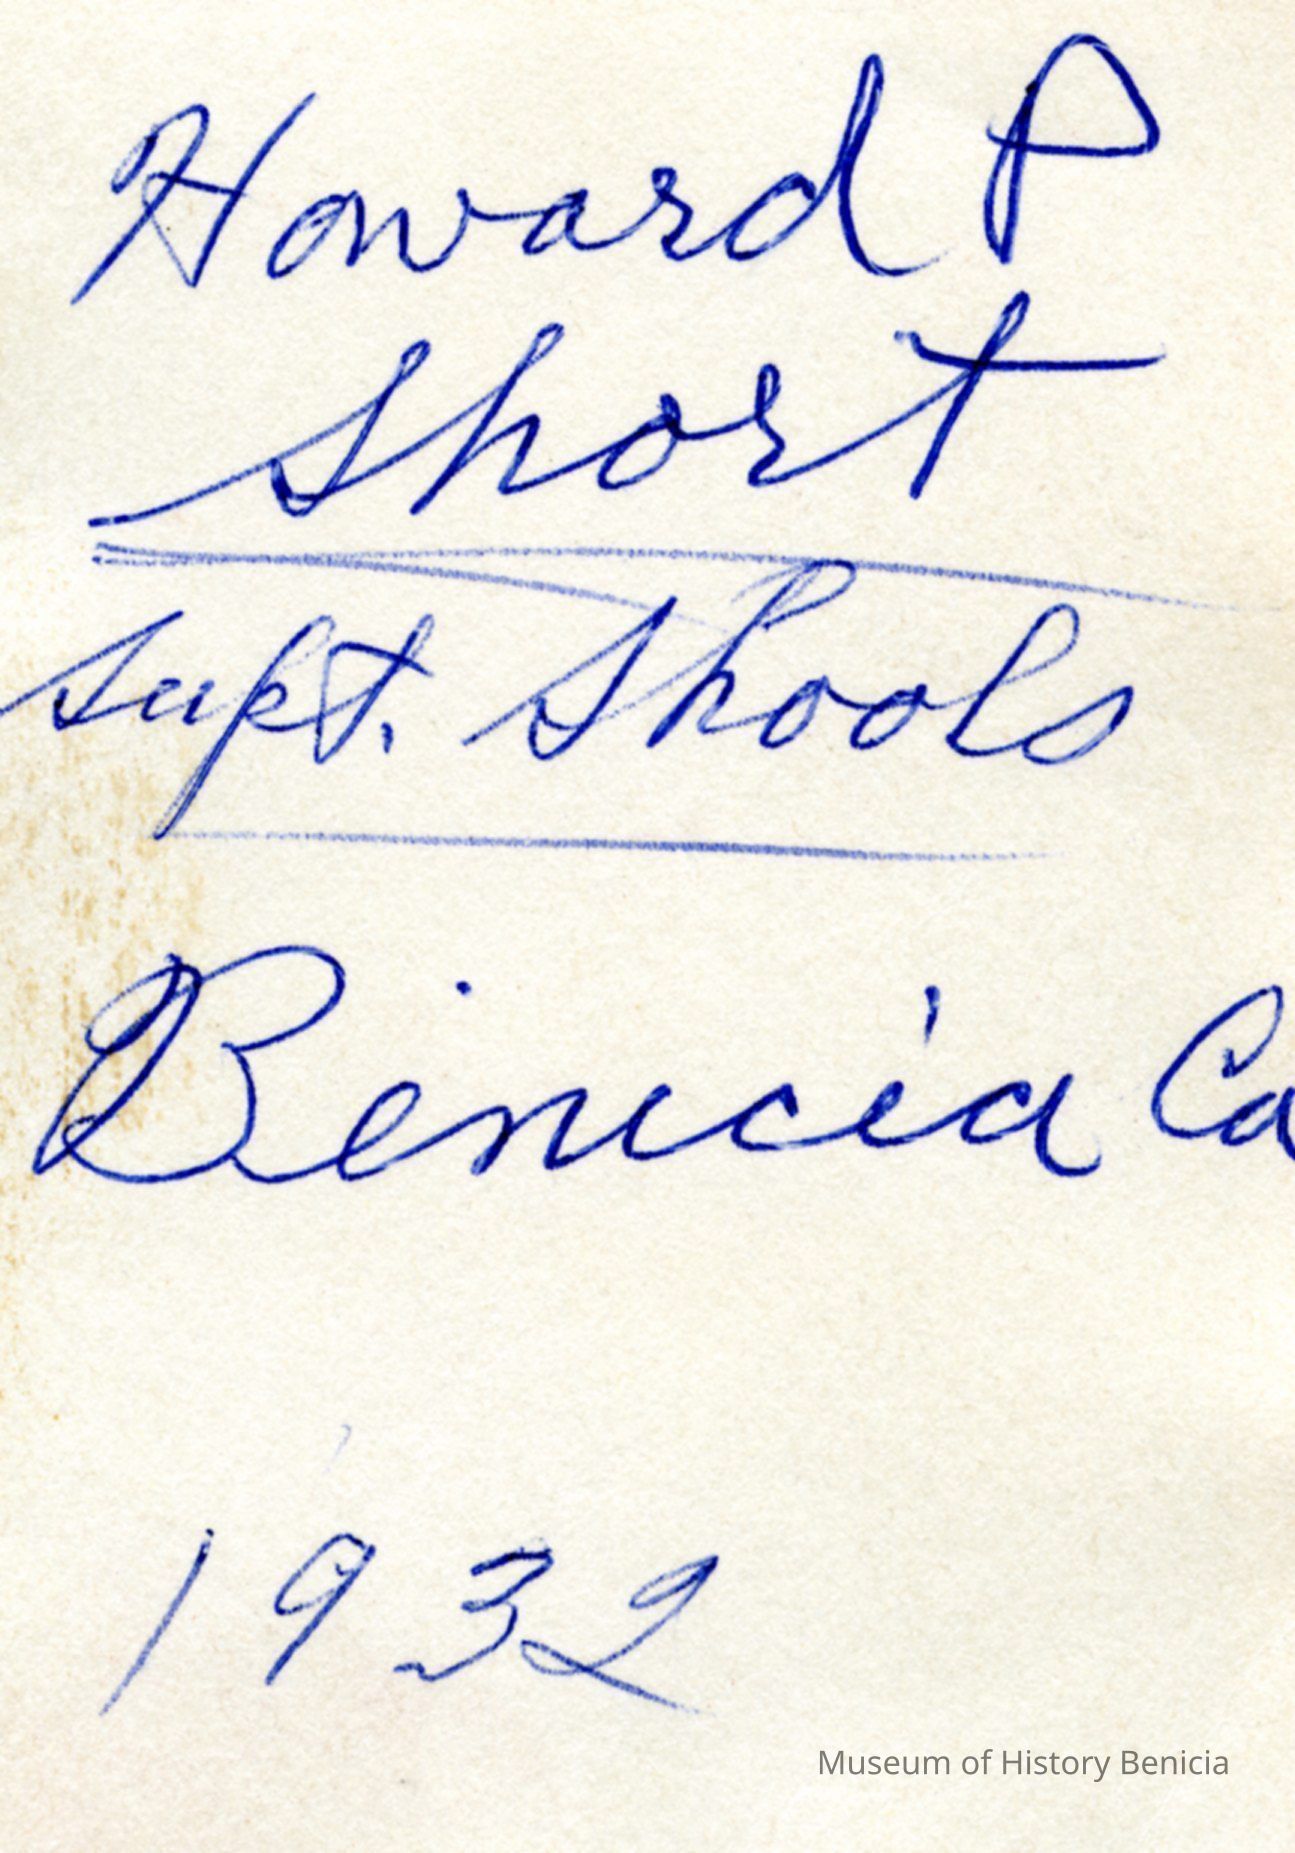 Howard P
Short
Supt. Shools
Benicia Ca
1932
Museum of History Benicia